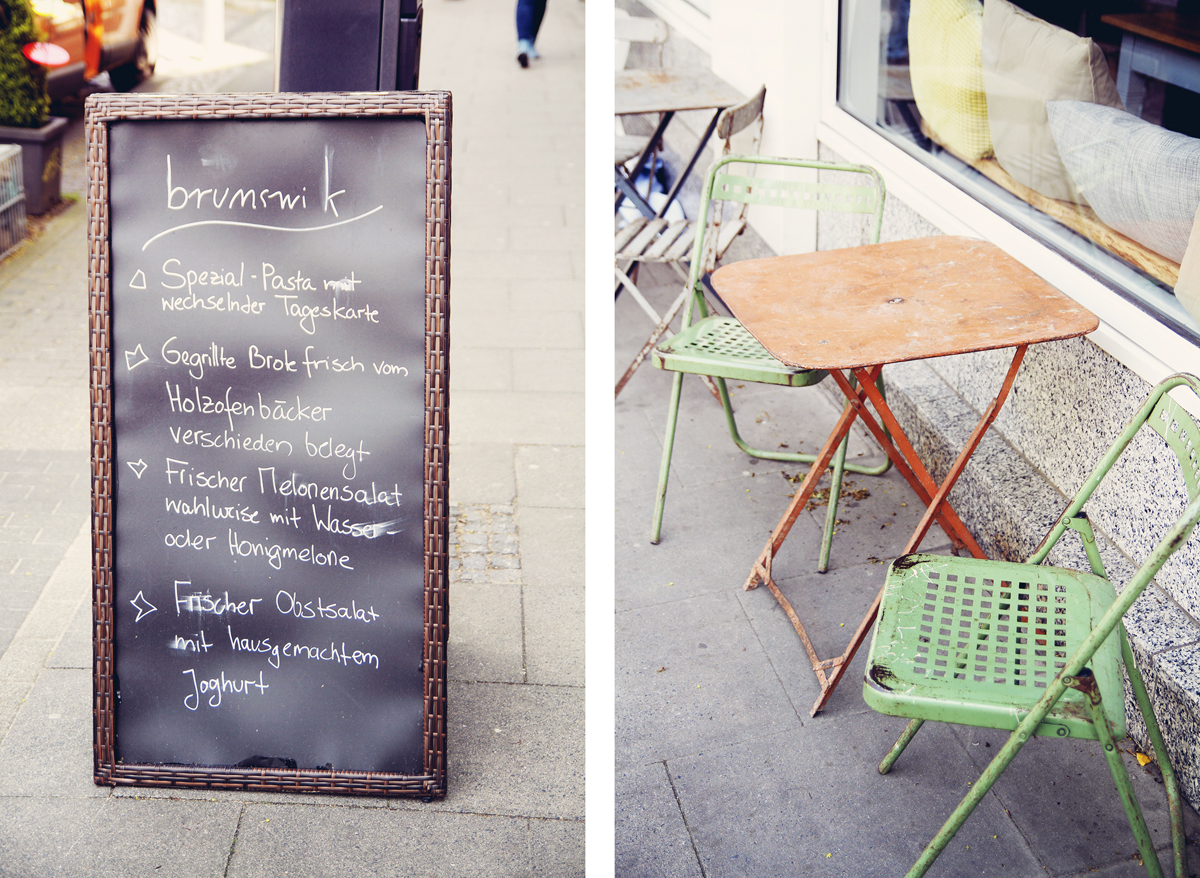 brunswik
Spezial-Pasta mit
wechselnder Tageskarte
Gegrillte Brote frisch vom
Holzofenbäcker
verschieden belegt
Frischer Melonensalat
wahlweise mit Wasser-
oder Honigmelone
Frischer Obstsalat
mit hausgemachtem
Joghurt